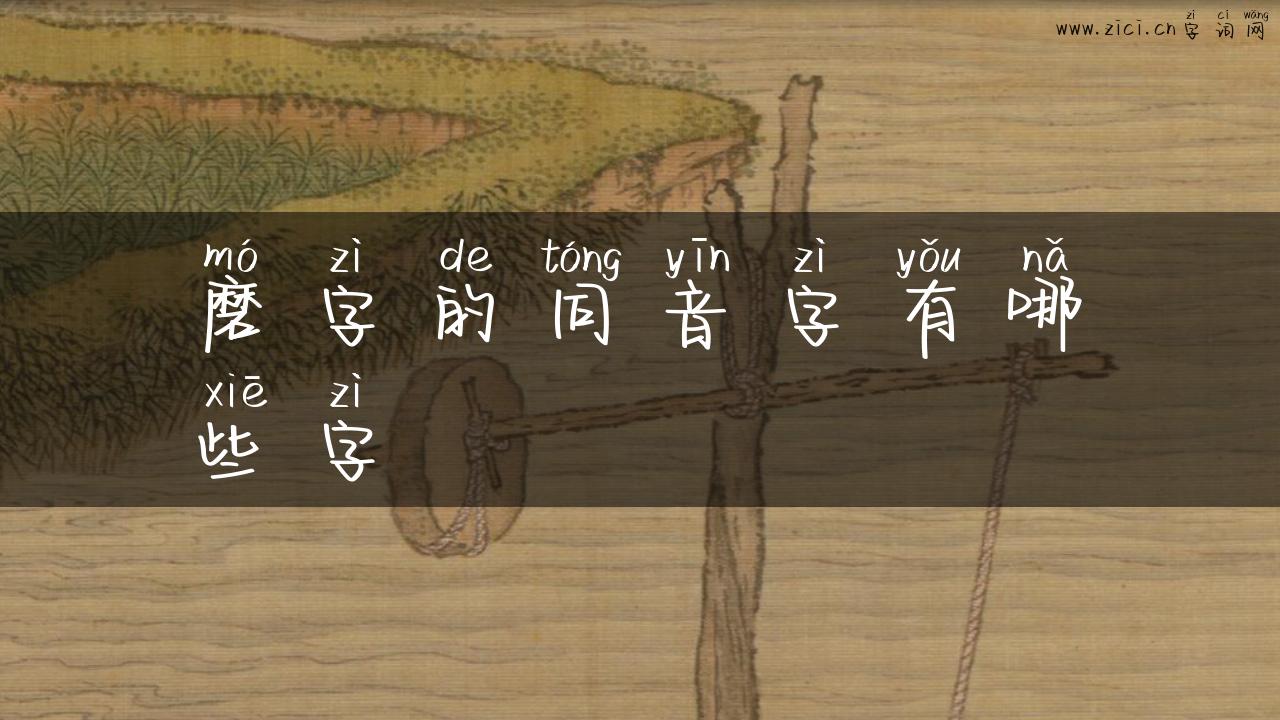 zì cí wǎng
www.zici.cn 字词网
mó zì de tóng yīn zì yǒu nǎ
磨字的同音字有哪
xiē zì
些字